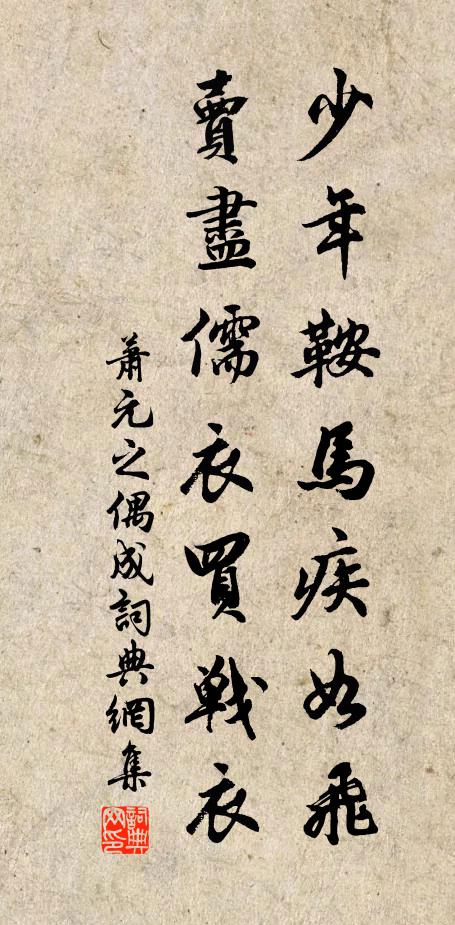 少年鞍馬疾如飛
賣盡儒衣買戰衣
蕭元之偶成詞典網集
詞典网印